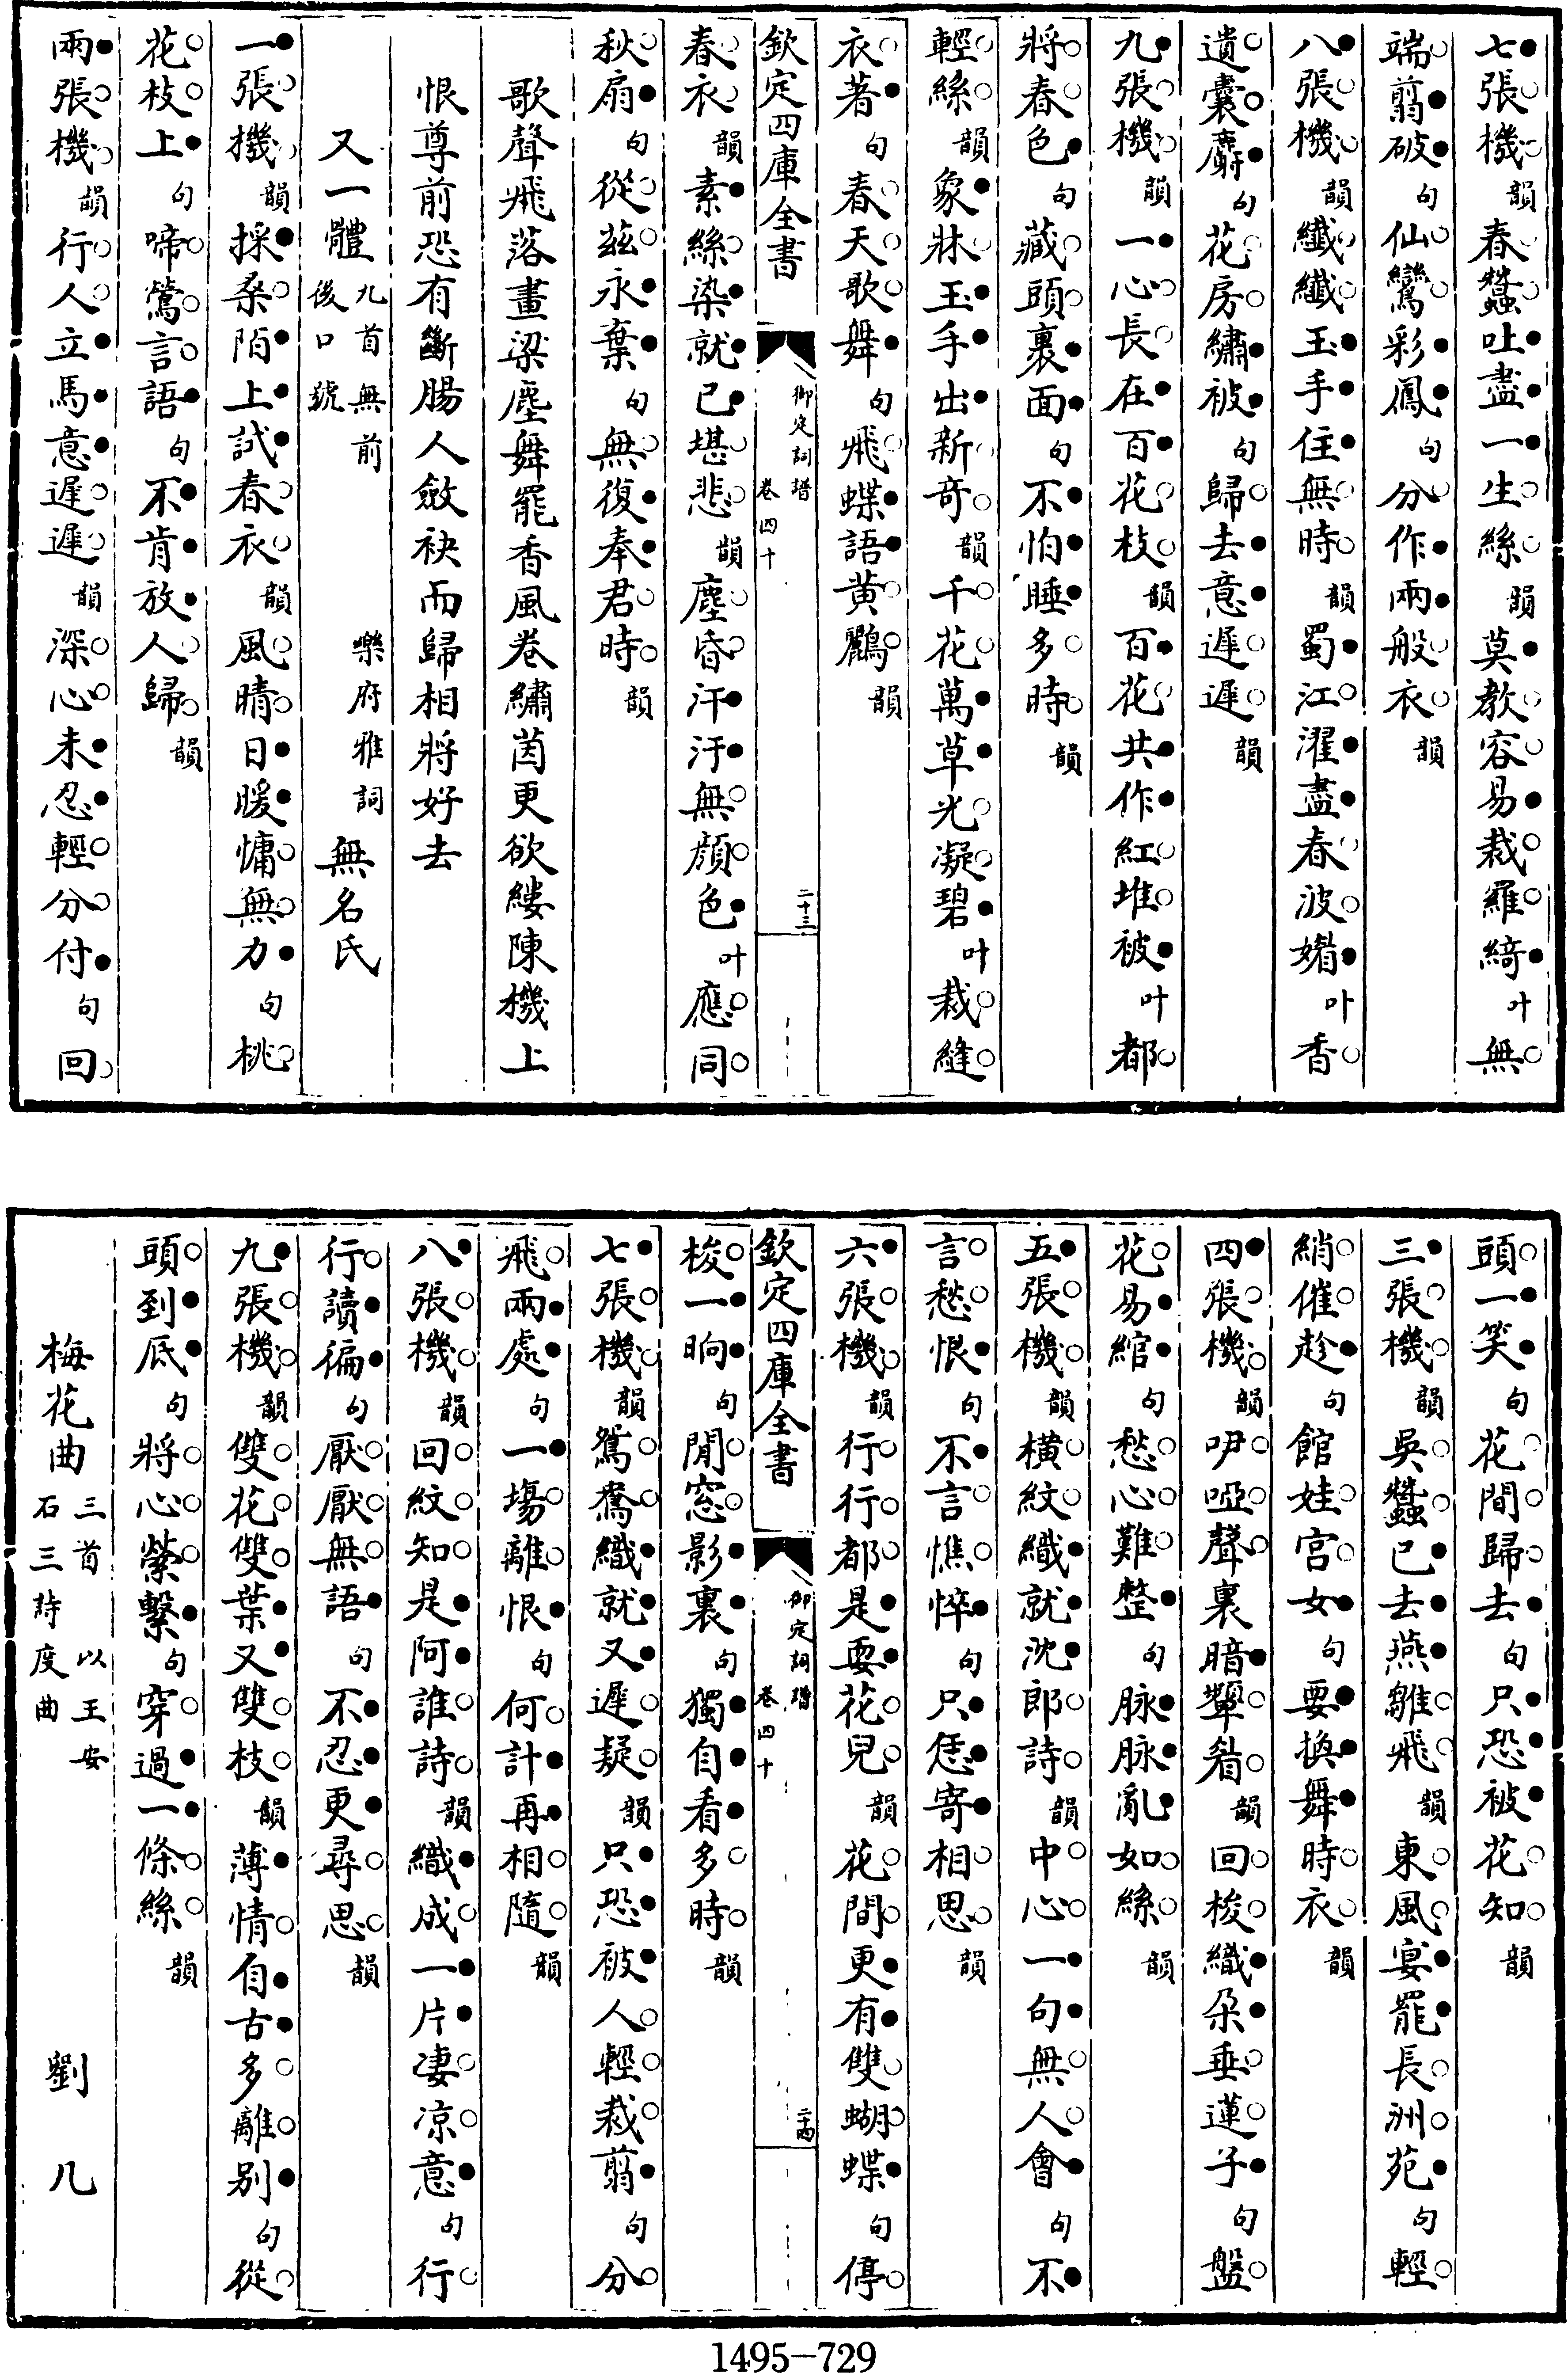 七張機韻春蠶吐盡一生絲韻莫教容易裁羅綺叶無
端翦破句仙鸞彩鳳句分作兩般衣韻
八張機韻纖纖玉手住無時韻蜀江濯盡春波媚叶香
遺囊麝句花房繡被句歸去意遲遲韻
九張機韻一心長在百花枝韻百花共作紅堆被叶都
將春色句藏頭裏面句不怕睡多時韻
輕絲韻象牀玉手出新奇韻千花萬草光凝碧叶裁縫
衣著句春天歌舞句飛蝶語黃鸝韻
欽定四庫全書
御定詞譜
卷四十
二十三
春衣韻素絲染就已堪悲韻塵昏汗汙無顏色叶應同
秋扇句從茲永棄句無復奉君時韻
歌聲飛落畫梁塵舞罷香風卷繡茵更欲縷陳機上
恨尊前恐有斷腸人斂袂而歸相將好去
又一體九首無前後口號 樂府雅詞 無名氏
一張機韻採桑陌上試春衣韻風晴日暖慵無力句桃
花枝上句啼鶯言語句不肯放人歸韻
兩張機韻行人立馬意遲遲韻深心未忍輕分付句回
頭一笑句花間歸去句只恐被花知韻
三張機韻吳蠶已去燕雛飛韻東風宴罷長洲苑句輕
綃催趁句館娃宮女句要換舞時衣韻
四張機韻咿啞聲裏暗顰眉韻回梭織朵垂蓮子句盤
花易綰句愁心難整句脉脉亂如絲韻
五張機韻橫紋織就沈郎詩韻中心一句無人會句不
言愁恨句不言憔悴句只恁寄相思韻
六張機韻行行都是耍花兒韻花間更有雙蝴蝶句停
欽定四庫全書
御定詞譜
卷四十
二十四
梭一晌句閒窓影裏句獨自看多時韻
七張機韻鴛鴦織就又遲疑韻只恐被人輕裁翦句分
飛兩處句一塲離恨句何計再相隨韻
八張機韻回紋知是阿誰詩韻織成一片凄凉意句行
行讀徧句厭厭無語句不忍更尋思韻
九張機韻雙花雙葉又雙枝韻薄情自古多離别句從
頭到底句將心縈繫句穿過一條絲韻
梅花曲三首以王安石三詩度曲 劉几
1495－729